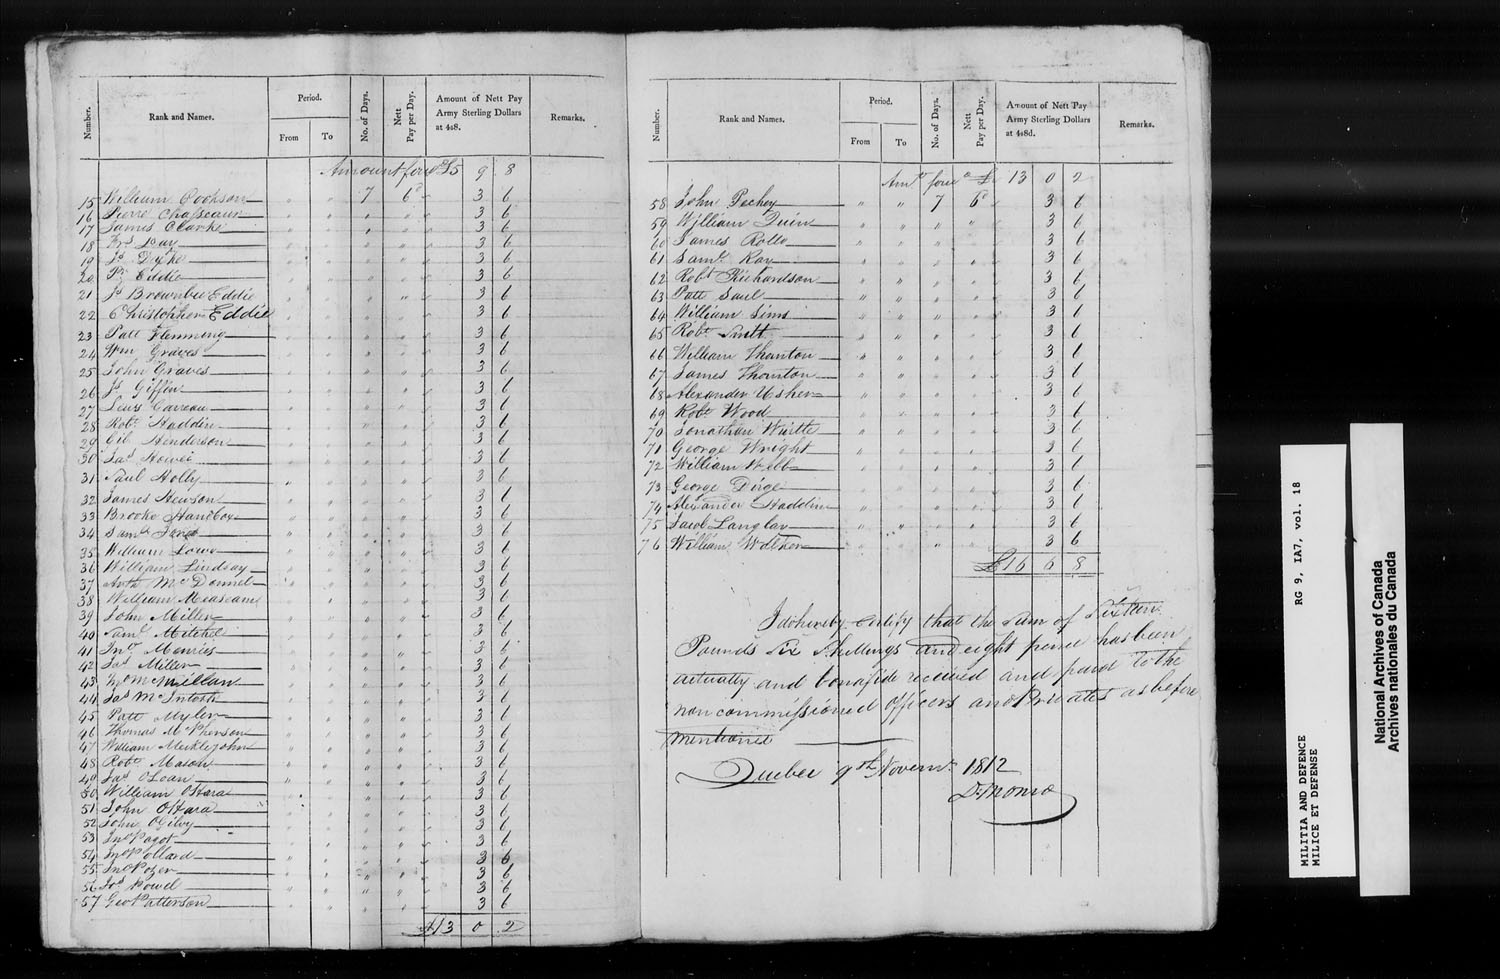 Number.
Rank and Names.
Period.
From
To
No. of Days.
Nett
Pay per Day.
Amount of Nett Pay
Army Sterling Dollars
at 4s8.
Remarks.
Amount forwd £5 9 8
15 William Cookson 7 6d 3 6
16 Pierre Chasseaur " " 3 6
17 James Clarke " " 3 6
18 Day " " 3 6
19 Js Dyke " " 3 6
20 Eddie " " 3 6
21 Js Brownbee Eddie " " 3 6
22 Christopher Eddie " " 3 6
23 Patt Flemming " " 3 6
24 Wm Graves " " 3 6
25 John Graves " " 3 6
26 Js Giffin " " 3 6
27 Lewis Garreau " " 3 6
28 Robt Haddin " " 3 6
29 Gib Henderson " " 3 6
30 Jas Howie " " 3 6
31 Paul Holly " " 3 6
32 James Hewson " " 3 6
33 Brooke Handbox " " 3 6
34 Saml Jones " " 3 6
35 William Lowe " " 3 6
36 William Lindsay " " 3 6
37 Arth Mc Donnel " " 3 6
38 William Measeam " " 3 6
39 John Miller " " 3 6
40 Saml Mitchel " " 3 6
41 Jno Menries " " 3 6
42 Jas Miller " " 3 6
43 McMillan " " 3 6
44 Jas McIntosh " " 3 6
45 Patt Myler " " 3 6
46 Thomas McPherson " " 3 6
47 William Meiklejohn " " 3 6
48 Robt Mason " " 3 6
49 Jas Oloan " " 3 6
50 William OHara " " 3 6
51 John OHara " " 3 6
52 John Ogilvy " " 3 6
53 Jno Pagot " " 3 6
54 Jno Pollard " " 3 6
55 Jno Pozer " " 3 6
56 Jos Powel " " 3 6
57 Geo Patterson " " 3 6
£13 0 2
Number.
Rank and Names.
Period.
From
To
No. of Days.
Nett
Pay per Day.
Amount of Nett Pay
Army Sterling Dollars
at 4s8d.
Remarks.
Amt forwd £ 13 0 2
58 John Pechey " " 7 6d 3 6
59 William Quin " " " " 3 6
60 James Rollo " " " " 3 6
61 Saml Ray " " " " 3 6
62 Robt Richardson " " " " 3 6
63 Patt Saul " " " " 3 6
64 William Sims " " " " 3 6
65 Robt Smitt " " " " 3 6
66 William Thanton " " " " 3 6
67 James Thornton " " " " 3 6
68 Alexander Usher " " " " 3 6
69 Robt Wood " " " " 3 6
70 Jonathan Wurtle " " " " 3 6
71 George Wright " " " " 3 6
72 William Webb " " " " 3 6
73 George Dirge " " " " 3 6
74 Alexander Haddin " " " " 3 6
75 Jacob Langlay " " " " 3 6
76 William Wolker " " " " 3 6
£16 6 8
I do hereby certify that the sum of Sixteen
Pounds Six Shillings and eight pence has been
actually and bonafide received and paid to the
non commissioned officers and Privates as before
mentioned
Quebec 9th Novemr 1812
D. Monro
RG 9, IA7, vol. 18
MILITIA AND DEFENCE
MILICE ET DEFENSE
National Archives of Canada
Archives nationales du Canada